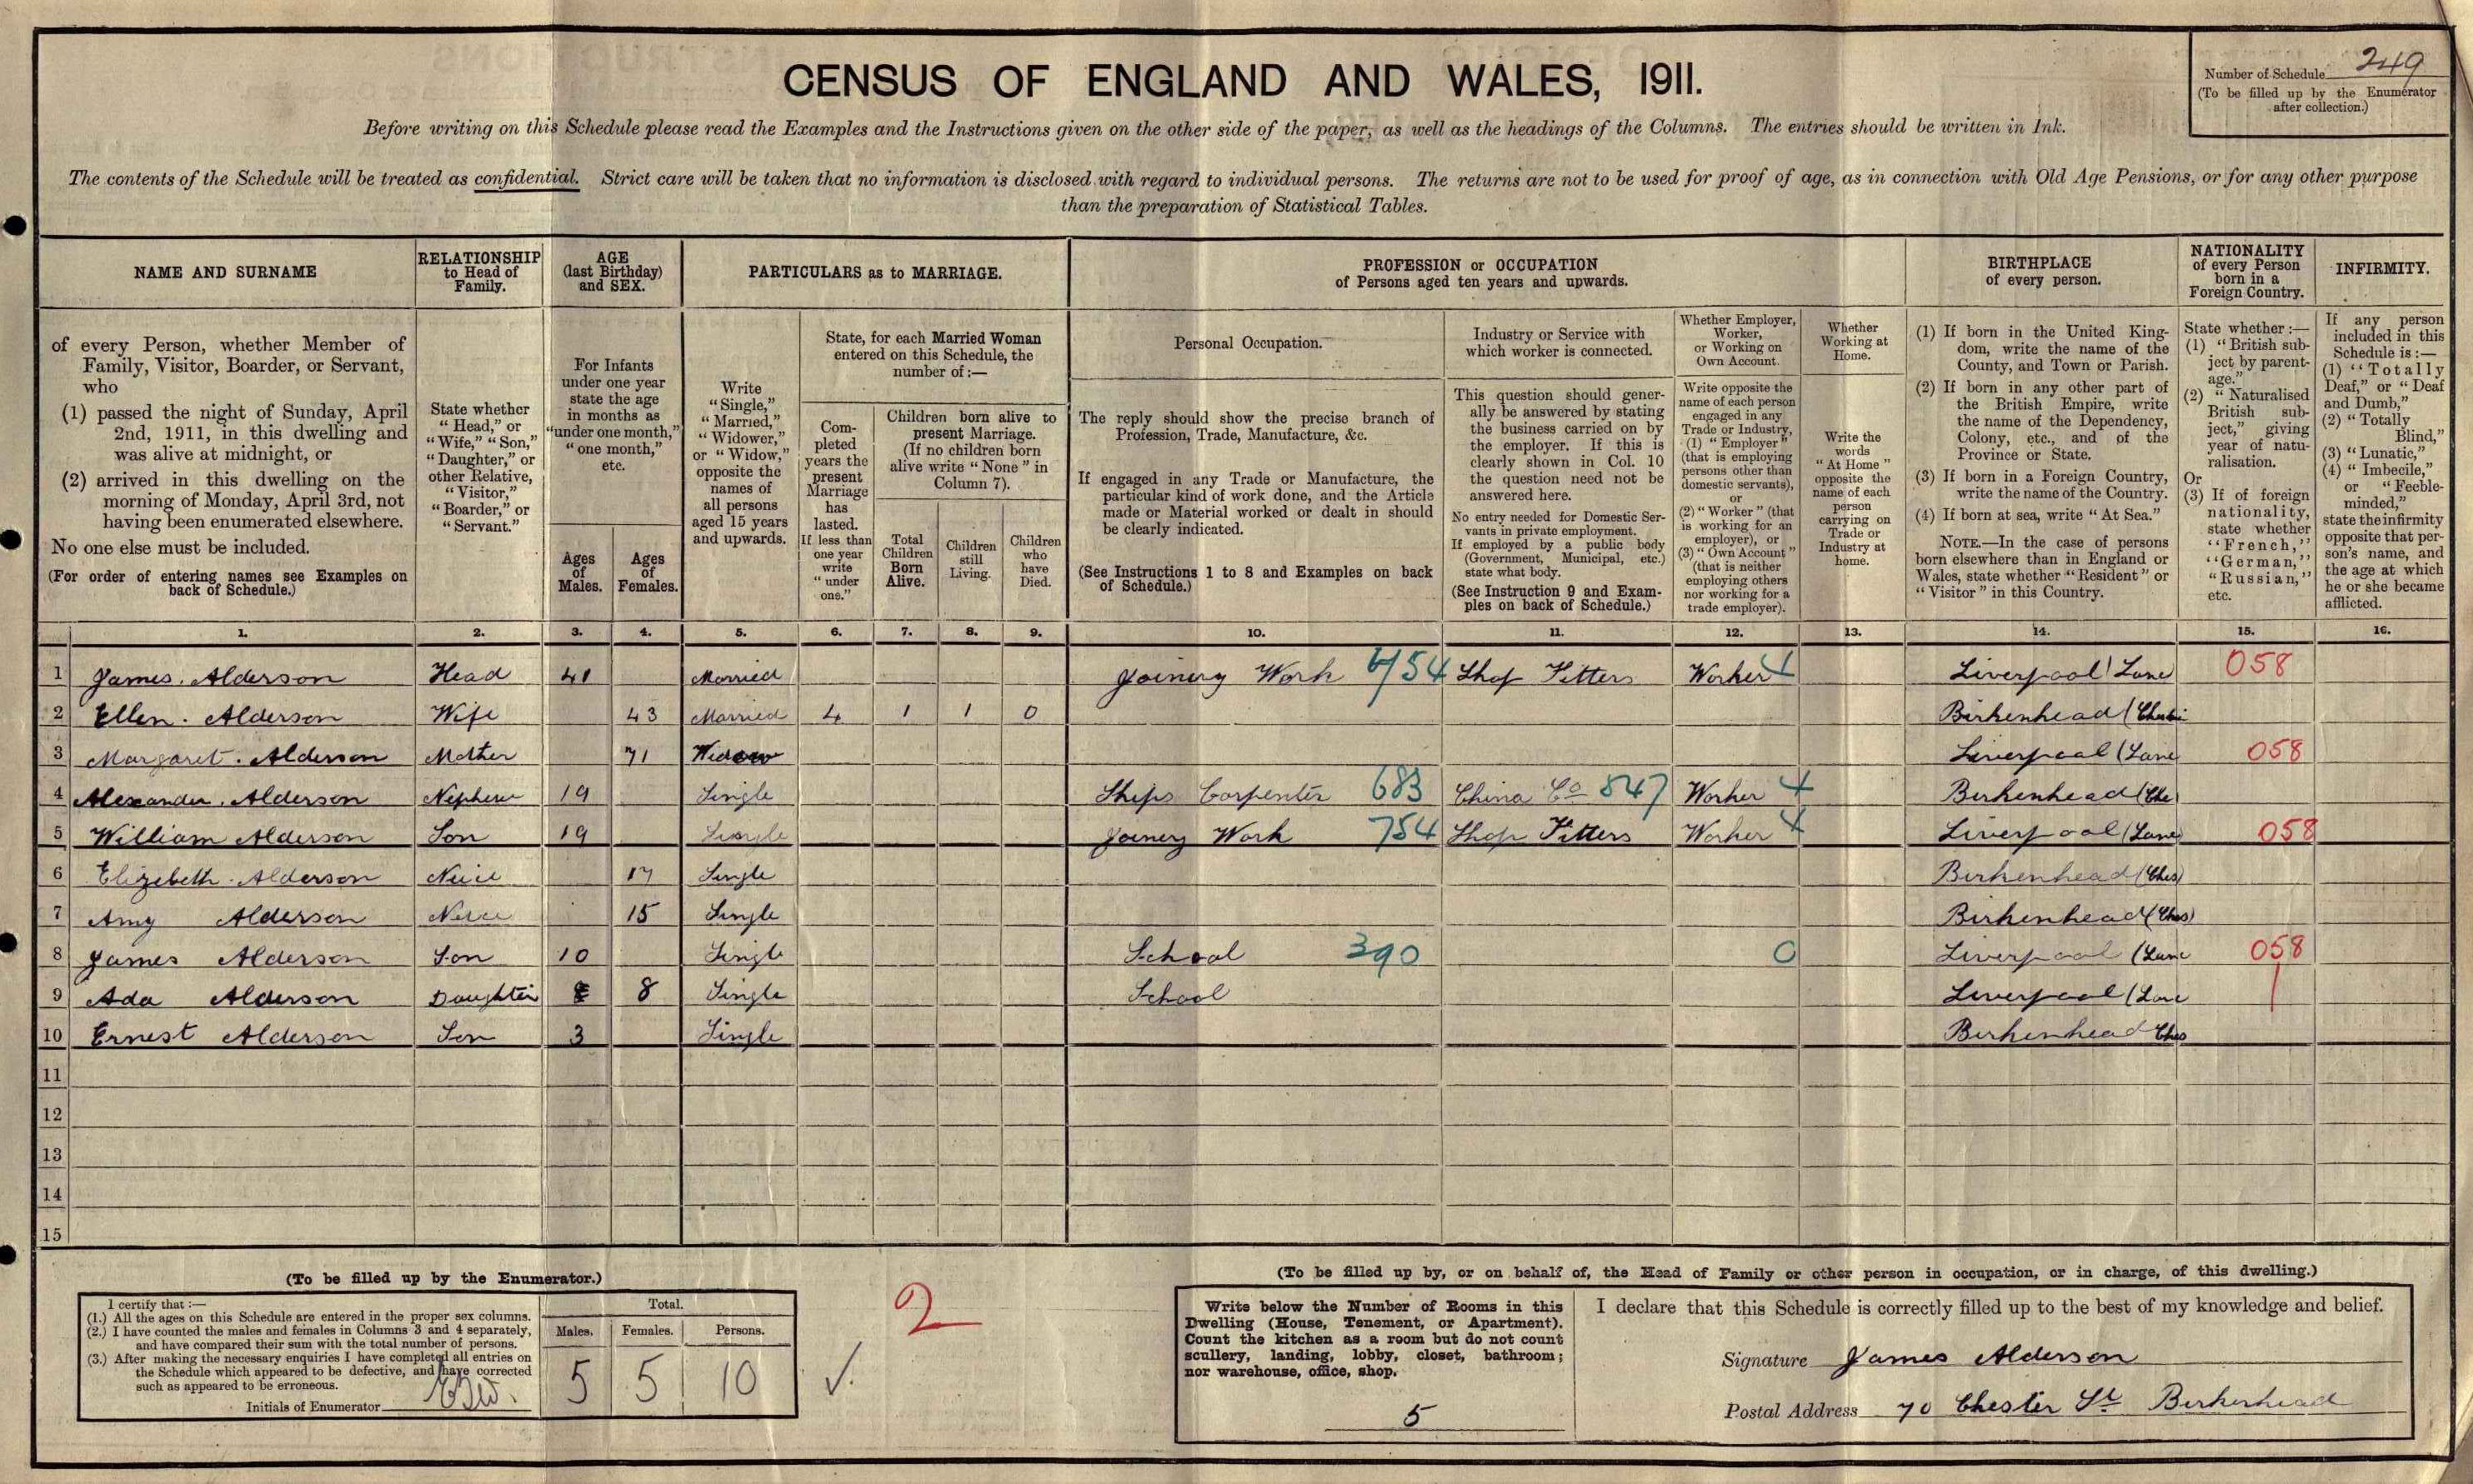 CENSUS OF ENGLAND AND WALES, 1911.
Number of Schedule 249
(To be filled up by the Enumerator after collection.)
Before writing on this Schedule please read the Examples and the Instructions given on the other side of the paper, as well as the headings of the Columns. The entries should be written in Ink.
The contents of the Schedule will be treated as confidential. Strict care will be taken that no information is disclosed with regard to individual persons. The returns are not to be used for proof of age, as in connection with Old Age Pensions, or for any other purpose
than the preparation of Statistical Tables.
NAME AND SURNAME
of every Person, whether Member of
Family, Visitor, Boarder, or Servant,
who
(1) passed the night of Sunday, April
2nd, 1911, in this dwelling and
was alive at midnight, or
(2) arrived in this dwelling on the
morning of Monday, April 3rd, not
having been enumerated elsewhere.
No one else must be included.
(For order of entering names see Examples on
back of Schedule.)
RELATIONSHIP
to Head of
Family.
State whether
"Head," or
"Wife," "Son,"
"Daughter," or
other Relative,
"Visitor,"
"Boarder," or
"Servant."
AGE
(last Birthday)
and SEX.
For Infants
under one year
state the age
in months as
"under one month,"
"one month,"
etc.
Ages
of
Males.
Ages
of
Females.
PARTICULARS as to MARRIAGE.
Write
"Single,"
"Married,"
"Widower,"
or "Widow,"
opposite the
names of
all persons
aged 15 years
and upwards.
State, for each Married Woman
entered on this Schedule, the
number of:—
Com-
pleted
years the
present
Marriage
has
lasted.
If less than
one year
write
"under
one."
Children born alive to
present Marriage.
(If no children born
alive write "None" in
Column 7).
Total
Children
Born
Alive.
Children
still
Living.
Children
who
have
Died.
PROFESSION or OCCUPATION
of Persons aged ten years and upwards.
Personal Occupation.
The reply should show the precise branch of
Profession, Trade, Manufacture, &c.
If engaged in any Trade or Manufacture, the
particular kind of work done, and the Article
made or Material worked or dealt in should
be clearly indicated.
(See Instructions 1 to 8 and Examples on back
of Schedule.)
Industry or Service with
which worker is connected.
This question should gener-
ally be answered by stating
the business carried on by
the employer. If this is
clearly shown in Col. 10
the question need not be
answered here.
No entry needed for Domestic Ser-
vants in private employment.
If employed by a public body
(Government, Municipal, etc.)
state what body.
(See Instruction 9 and Exam-
ples on back of Schedule.)
Whether Employer,
Worker,
or Working on
Own Account.
Write opposite the
name of each person
engaged in any
Trade or Industry,
(1) "Employer"
(that is employing
persons other than
domestic servants),
or
(2) "Worker" (that
is working for an
employer), or
(3) "Own Account"
(that is neither
employing others
nor working for a
trade employer).
Whether
Working at
Home.
Write the
words
"At Home"
opposite the
name of each
person
carrying on
Trade or
Industry at
home.
BIRTHPLACE
of every person.
(1) If born in the United King-
dom, write the name of the
County, and Town or Parish.
(2) If born in any other part of
the British Empire, write
the name of the Dependency,
Colony, etc., and of the
Province or State.
(3) If born in a Foreign Country,
write the name of the Country.
(4) If born at sea, write "At Sea."
NOTE.—In the case of persons
born elsewhere than in England or
Wales, state whether "Resident" or
"Visitor" in this Country.
NATIONALITY
of every Person
born in a
Foreign Country.
State whether:—
(1) "British sub-
ject by parent-
age."
(2) "Naturalised
British sub-
ject," giving
year of natu-
ralisation.
Or
(3) If of foreign
nationality,
state whether
"French,"
"German,"
"Russian,"
etc.
INFIRMITY.
If any person
included in this
Schedule is:—
(1) "Totally
Deaf," or "Deaf
and Dumb,"
(2) "Totally
Blind,"
(3) "Lunatic,"
(4) "Imbecile,"
or "Feeble-
minded,"
state the infirmity
opposite that per-
son's name, and
the age at which
he or she became
afflicted.
1. 2. 3. 4. 5. 6. 7. 8. 9. 10. 11. 12. 13. 14. 15. 16.
1 James. Alderson Head 41 Married Joinery Work 754 Shop Fitters Worker 4 Liverpool (Lanc 058
2 Ellen. Alderson Wife 43 Married 4 1 1 0 Birkenhead
3 Margaret. Alderson Mother 71 Widow Liverpool (Lanc 058
4 Alexander. Alderson Nephew 19 Single Ships Carpenter 683 China Co 847 Worker 4 Birkenhead (Che)
5 William Alderson Son 19 Single Joinery Work 754 Shop Fitters Worker 4 Liverpool (Lanc) 058
6 Elizebeth. Alderson Neice 17 Single Birkenhead (Ches)
7 Amy Alderson Neice 15 Single Birkenhead (Ches)
8 James Alderson Son 10 Single School 390 0 Liverpool (Lanc 058
9 Ada Alderson Daughter 8 Single School Liverpool (Lanc
10 Ernest Alderson Son 3 Single Birkenhead Ches
11
12
13
14
15
(To be filled up by the Enumerator.)
I certify that:—
(1.) All the ages on this Schedule are entered in the proper sex columns.
(2.) I have counted the males and females in Columns 3 and 4 separately,
and have compared their sum with the total number of persons.
(3.) After making the necessary enquiries I have completed all entries on
the Schedule which appeared to be defective, and have corrected
such as appeared to be erroneous.
Initials of Enumerator
Total.
Males. Females. Persons.
5 5 10
2
(To be filled up by, or on behalf of, the Head of Family or other person in occupation, or in charge, of this dwelling.)
Write below the Number of Rooms in this
Dwelling (House, Tenement, or Apartment).
Count the kitchen as a room but do not count
scullery, landing, lobby, closet, bathroom;
nor warehouse, office, shop.
5
I declare that this Schedule is correctly filled up to the best of my knowledge and belief.
Signature James Alderson
Postal Address 70 Chester St Birkenhead